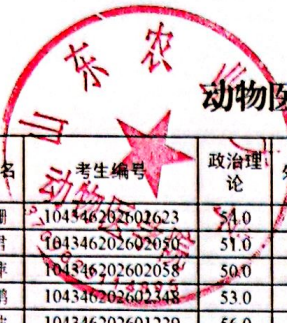 山东农业
动物医
动物医学院
名 考生编号 政治理论
104346202602623 54.0
104346202602050 51.0
104346202602058 50.0
104346202602348 53.0
104346202601229 56.0